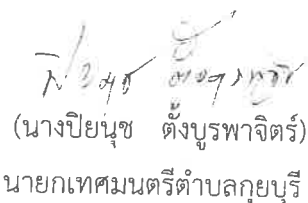 (นางปิยนุช ตั้งบูรพาจิตร์)
นายกเทศมนตรีตำบลกุยบุรี